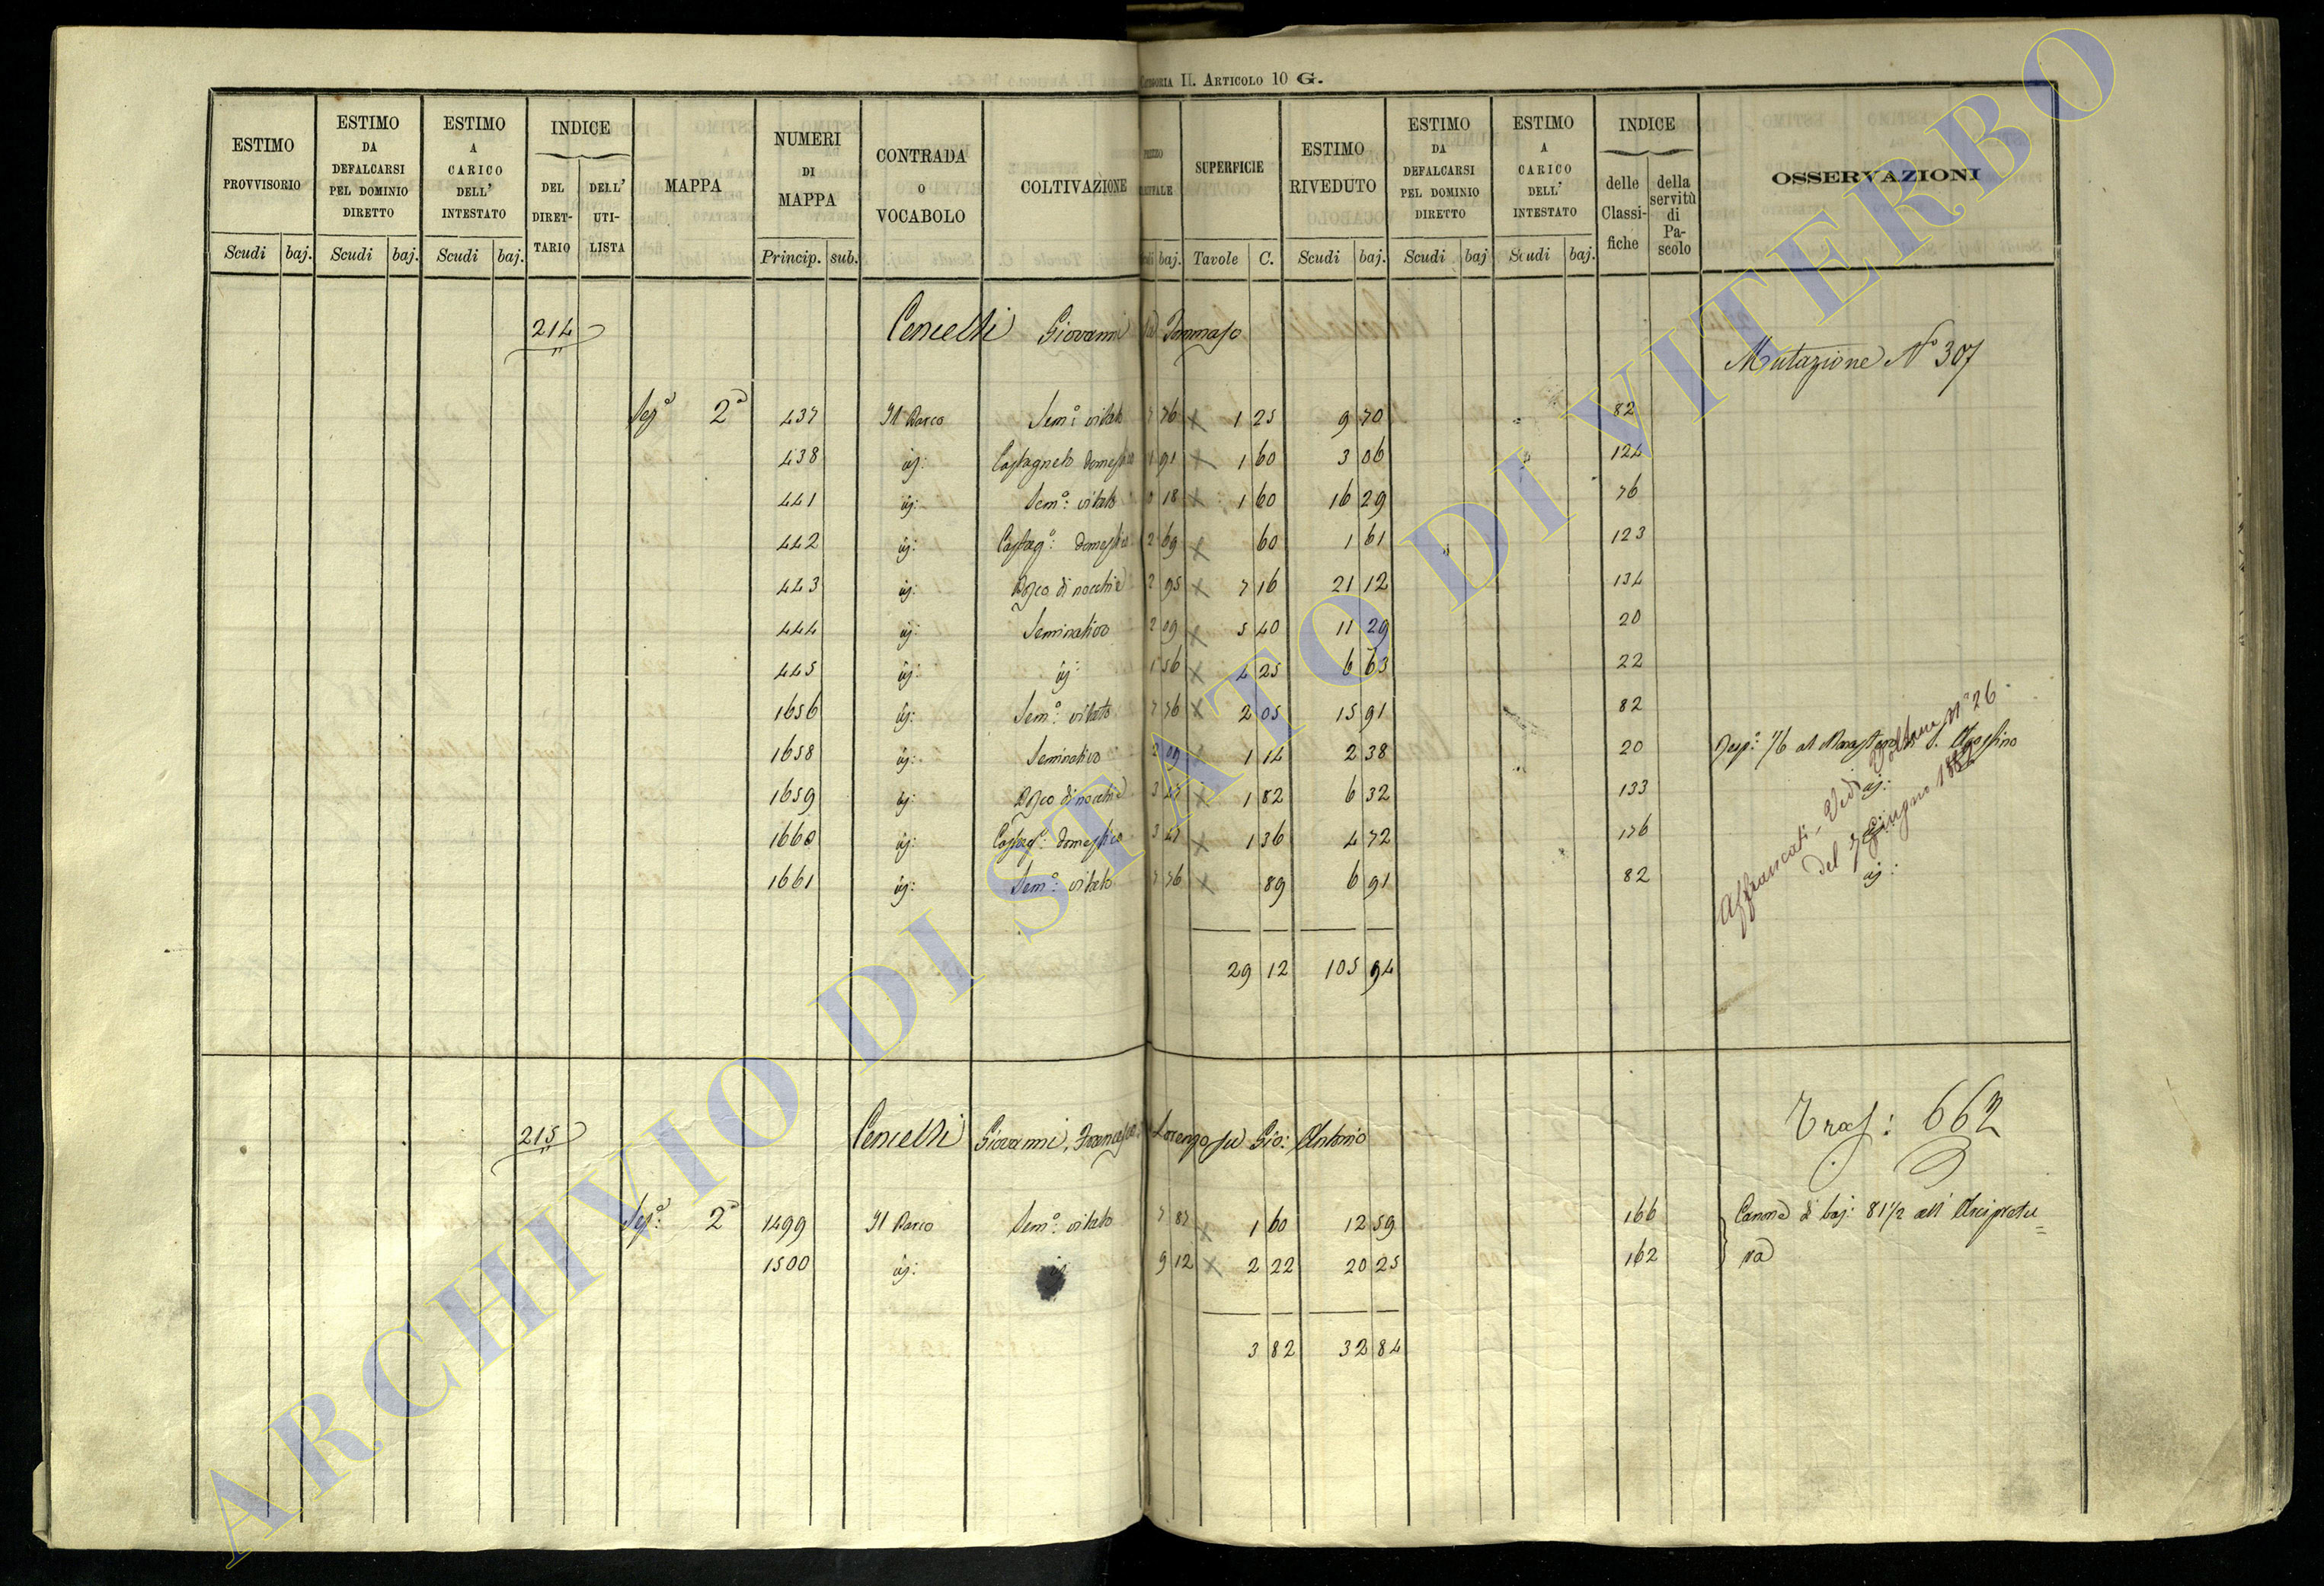 CATEGORIA II. ARTICOLO 10 G.
ESTIMO PROVVISORIO
ESTIMO DA DEFALCARSI PEL DOMINIO DIRETTO
ESTIMO A CARICO DELL' INTESTATO
INDICE
DEL DIRET-TARIO
DELL' UTI-LISTA
MAPPA
NUMERI DI MAPPA
CONTRADA O VOCABOLO
COLTIVAZIONE
SUPERFICIE
ESTIMO RIVEDUTO
ESTIMO DA DEFALCARSI PEL DOMINIO DIRETTO
ESTIMO A CARICO DELL' INTESTATO
INDICE
delle Classi-fiche
della servitù di Pa-scolo
OSSERVAZIONI
Scudi baj. Scudi baj. Scudi baj. Princip. sub. baj. Tavole C. Scudi baj. Scudi baj Scudi baj.
214 Cencelli Giovanni Tommaso
Mutazione N° 307
Sez.ª 2ª 437 Il Parco Sem.º vitato 76 1 25 9 70 82
438 id: Castagneto domestico 1 91 1 60 3 06 124
441 id: Sem.º: vitato 18 1 60 16 29 76
442 id: Castag.º: domestico 2 69 60 1 61 123
443 id: Bosco di nocchie 2 95 7 16 21 12 134
444 id: Seminativo 2 09 5 40 11 29 20
445 id: id: 1 56 4 25 6 63 22
1656 id: Sem.º: vitato 7 76 2 05 15 91 82
1658 id: Seminativo 2 09 1 14 2 38 20
1659 id: Bosco di nocchie 3 47 1 82 6 32 133
1660 id: Castag.º: domestico 3 47 1 36 4 72 176
1661 id: Sem.º: vitato 7 76 89 6 91 82
S. Agostino
id:
id:
Affrancati, Vedi Voltura N° 26
del 7 Giugno 1882
29 12 105 94
215 Cencelli Giovanni, Francesco, Lorenzo fu Gio: Antonio
Tras: 662
Sez.ª: 2ª 1499 Il Parco Sem.º: vitato 7 87 1 60 12 59 166 Canone di baj: 81 1/2 all' Arcipretu=
1500 id: id 9 12 2 22 20 25 162 ra
3 82 32 84
ARCHIVIO DI STATO DI VITERBO